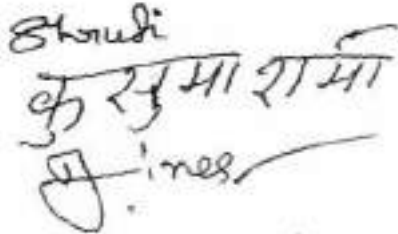 Shruti
कुसुमा शर्मा